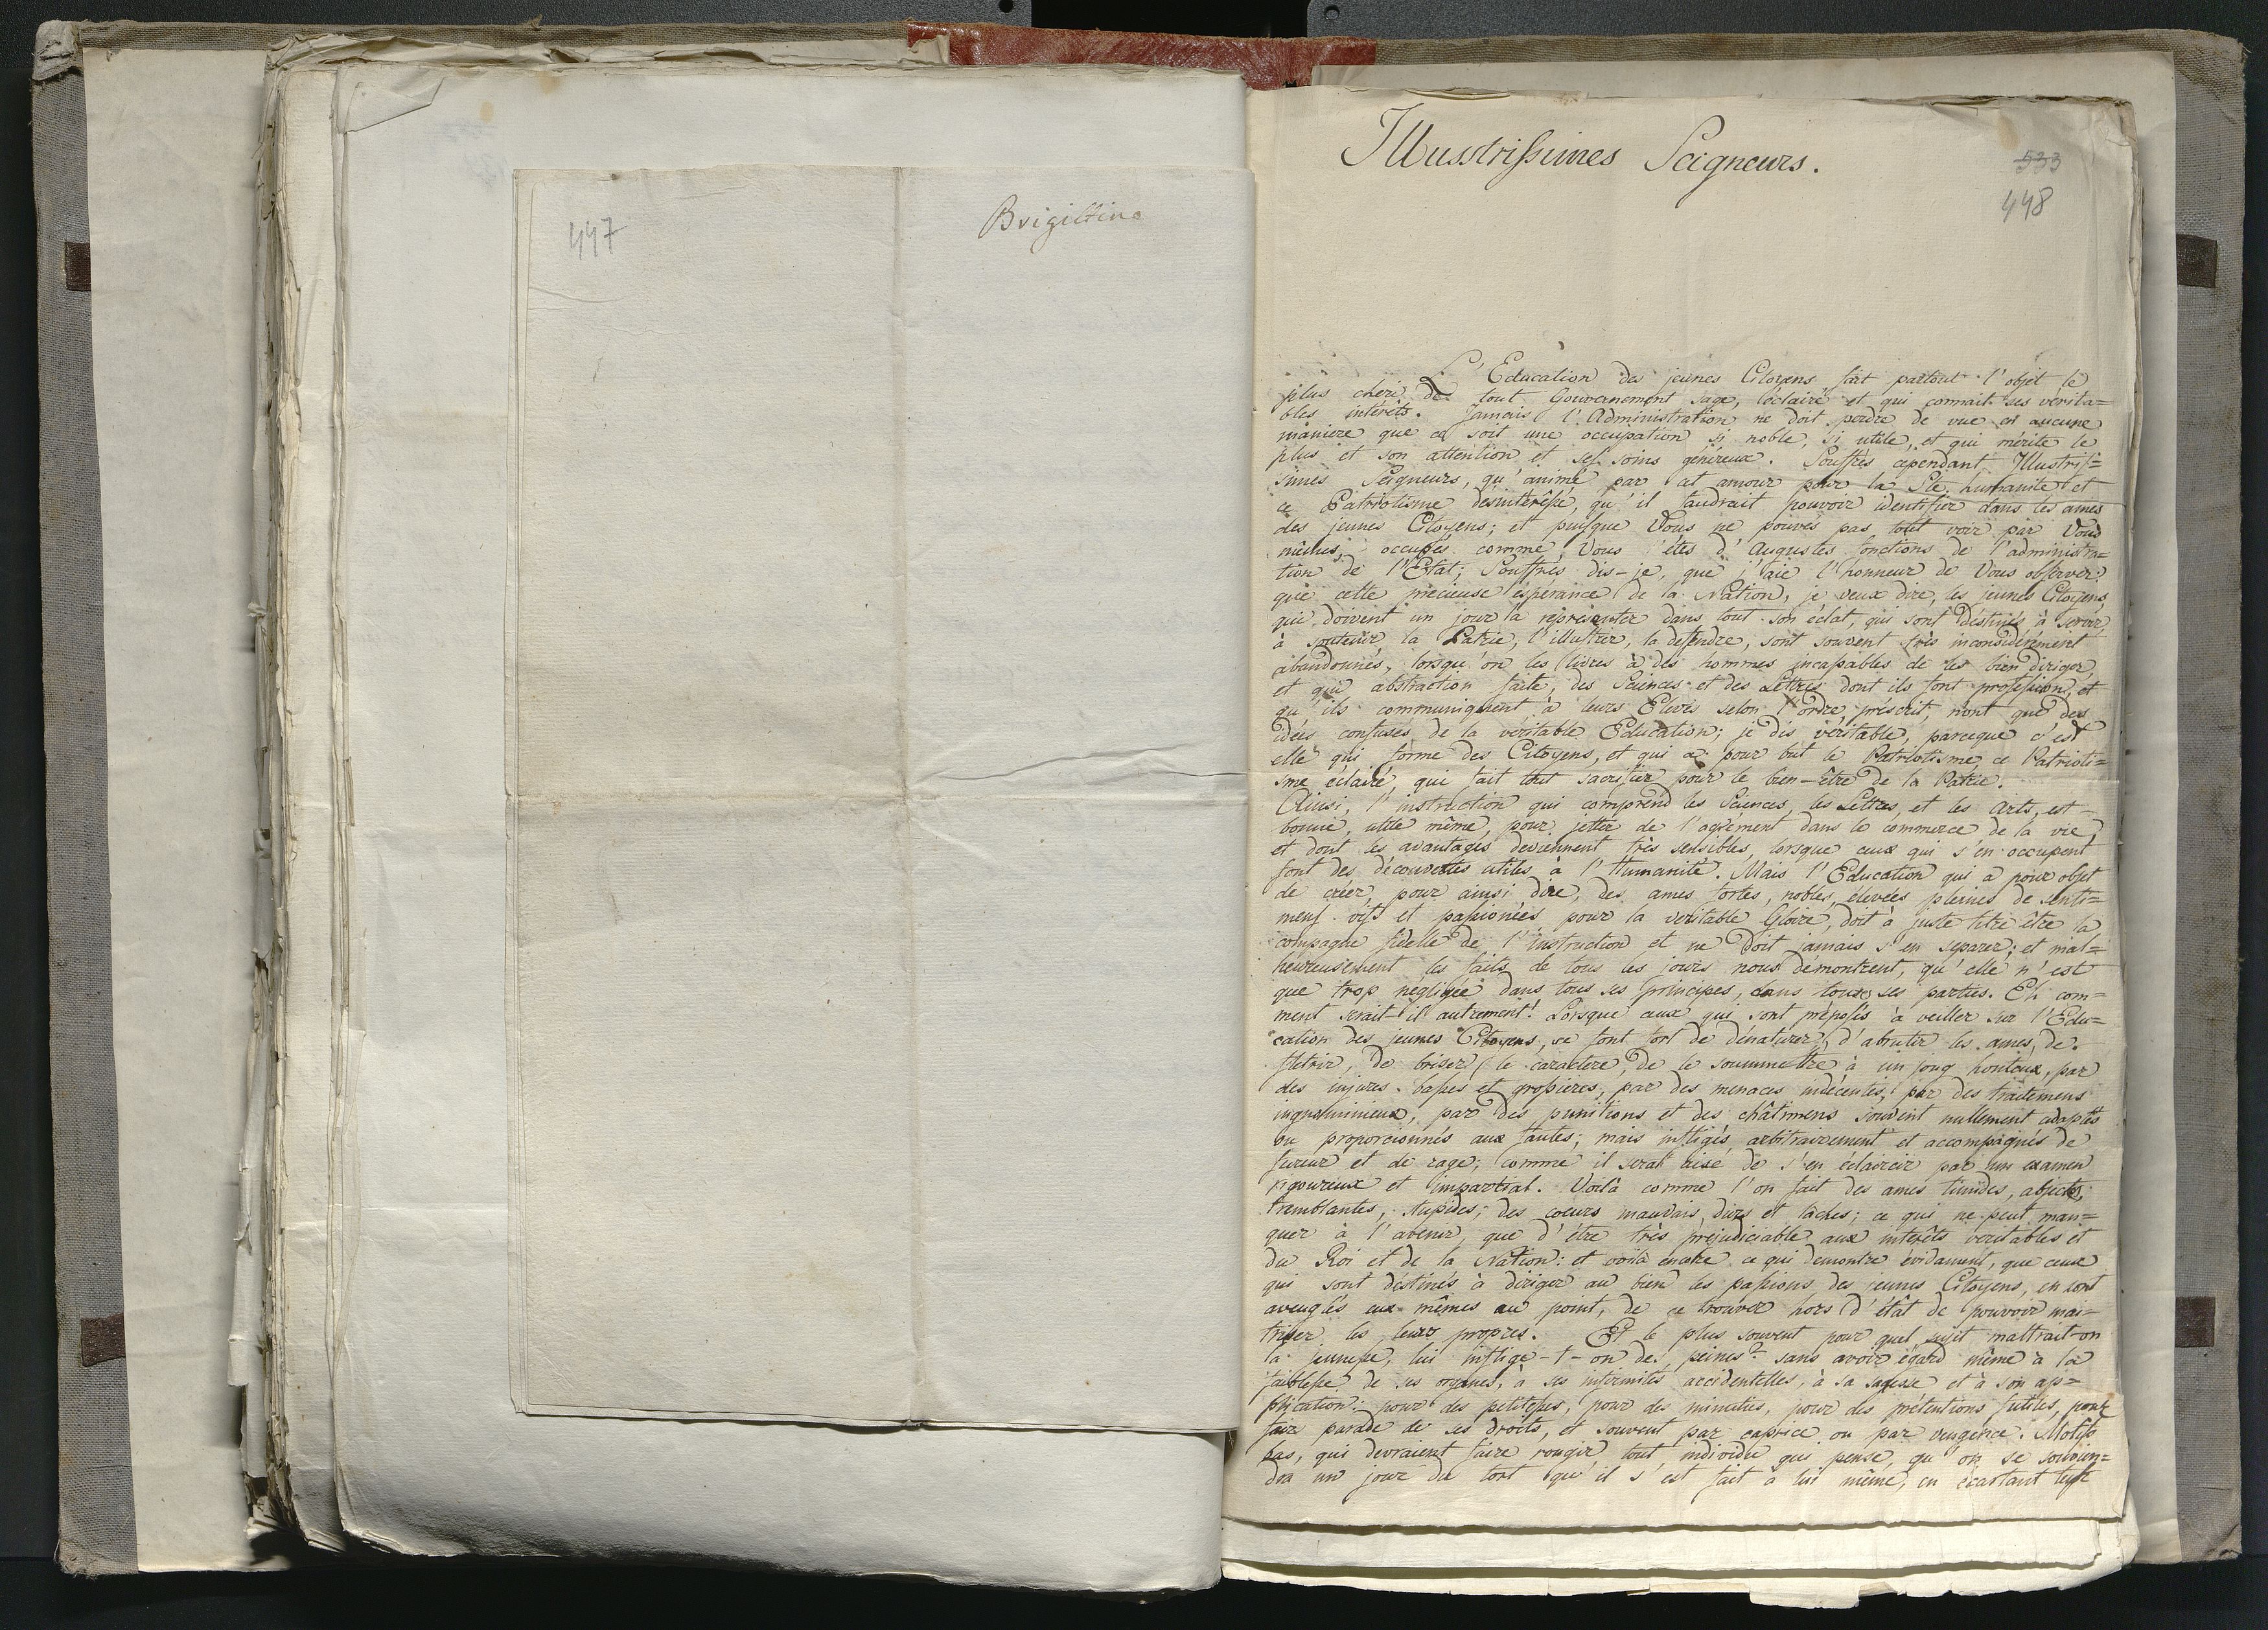 447
Brigittine
Illusstrissimes Seigneurs.
533
448
L'Education des jeunes Citoyens fait partout l'objet le
plus cheri de tout Gouvernement sage, éclairé et qui connait ses vérita=
bles intérêts. Jamais l'Administration ne doit perdre de vue en aucune
maniere que ce soit une occupation si noble, si utile, et qui mérite le
plus et son attention et ses soins généreux. Souffrés cependant Illustris=
simes Seigneurs, qu'animé par cet amour pour la humanité et
ce Patriotisme desintéressé, qu'il faudrait pouvoir identifier dans les ames
des jeunes Citoyens; et puisque Vous ne pouvés pas tout voir par Vous
mêmes, occupés comme Vous êtes d'Augustes fonctions de l'administra=
tion de l'Etat; Souffrés dis-je, que j'aie l'honneur de Vous observer
que cette precieuse espérance de la Nation, je veux dire, les jeunes Citoyens,
qui doivent un jour la réprésenter dans tout son éclat, qui sont déstinés à servir
à soutenir la Patrie, l'illustrer, la defendre, sont souvent très inconsidérément
abandonnés, lorsqu'on les livres à des hommes incapables de les bien diriger,
et qui abstraction faite, des Sciences et des Lettres dont ils font profession, et
qu'ils communiquent à leurs Elevés selon l'ordre préscrit, n'ont que des
idées confuses de la véritable Education; je dis véritable, parceque c'est
elle qui forme des Citoyens, et qui a pour but le Patriotisme, ce Patrioti=
sme éclairé, qui fait tout sacrifier pour le bien-être de la Patrie.
Ainsi, l'instruction qui comprend les Sciences, les Lettres, et les Arts, est
bonne, utile même, pour jetter de l'agrément dans le commerce de la vie,
et dont les avantages deviennent très sensibles, lorsque ceux qui s'en occupent
font des découvertes utiles à l'Humanité. Mais l'Education qui a pour objet
de créer, pour ainsi dire, des ames fortes, nobles, élevées pleines de senti=
mens vifs et passionées pour la veritable Gloire, doit à juste titre être la
compagne fidelle de l'instruction et ne doit jamais s'en separer; et mal=
heureusement les faits de tous les jours nous démontrent, qu'elle n'est
que trop negligée dans tous ses principes, dans toutes ses parties. Eh com=
ment serait-il autrement! Lorsque ceux qui sont préposés à veiller sur l'Edu=
cation des jeunes Citoyens, se font fort de dénaturer, d'abrutir les ames, de
fletrir, de briser le caractere, de le soummettre à un joug honteux, par
des injures basses et grossieres, par des menaces indécentes, par des traitemens
ingnominieux, par des punitions et des châtimens souvent nullement adaptés
ou proporcionnés aux fautes; mais infligés arbitrairement et accompagnés de
fureur et de rage; comme il serait aisé de s'en éclaircir par un examen
rigoureux et impartial. Voilà comme l'on fait des ames timides, abjectes,
tremblantes, stupides; des coeurs mauvais, durs et lâches; ce qui ne peut man=
quer à l'avenir, que d'être très prejudiciable aux intérêts veritables et
du Roi et de la Nation: et voilà encore ce qui demontre évidament, que ceux
qui sont déstinés à diriger au bien les passions des jeunes Citoyens, en sont
aveuglés eux-mêmes au point, de ce trouver hors d'état de pouvoir mai=
triser les leurs propres. Et le plus souvent pour quel sujet maltrait-on
la jeunesse, lui inflige-t-on des peines? sans avoir égard même à la
faiblesse de ses organes, à ses infirmités accidentelles, à sa sagesse et à son ap=
plication: pour des petitesses, pour des minuties, pour des prétentions futiles, pour
faire parade de ses droits, et souvent par caprice ou par vengence. Motifs
bas, qui devraient faire rougir tout individu qui pense, qu'on se souvien=
dra un jour du tort qu'il s'est fait à lui même, en écartant